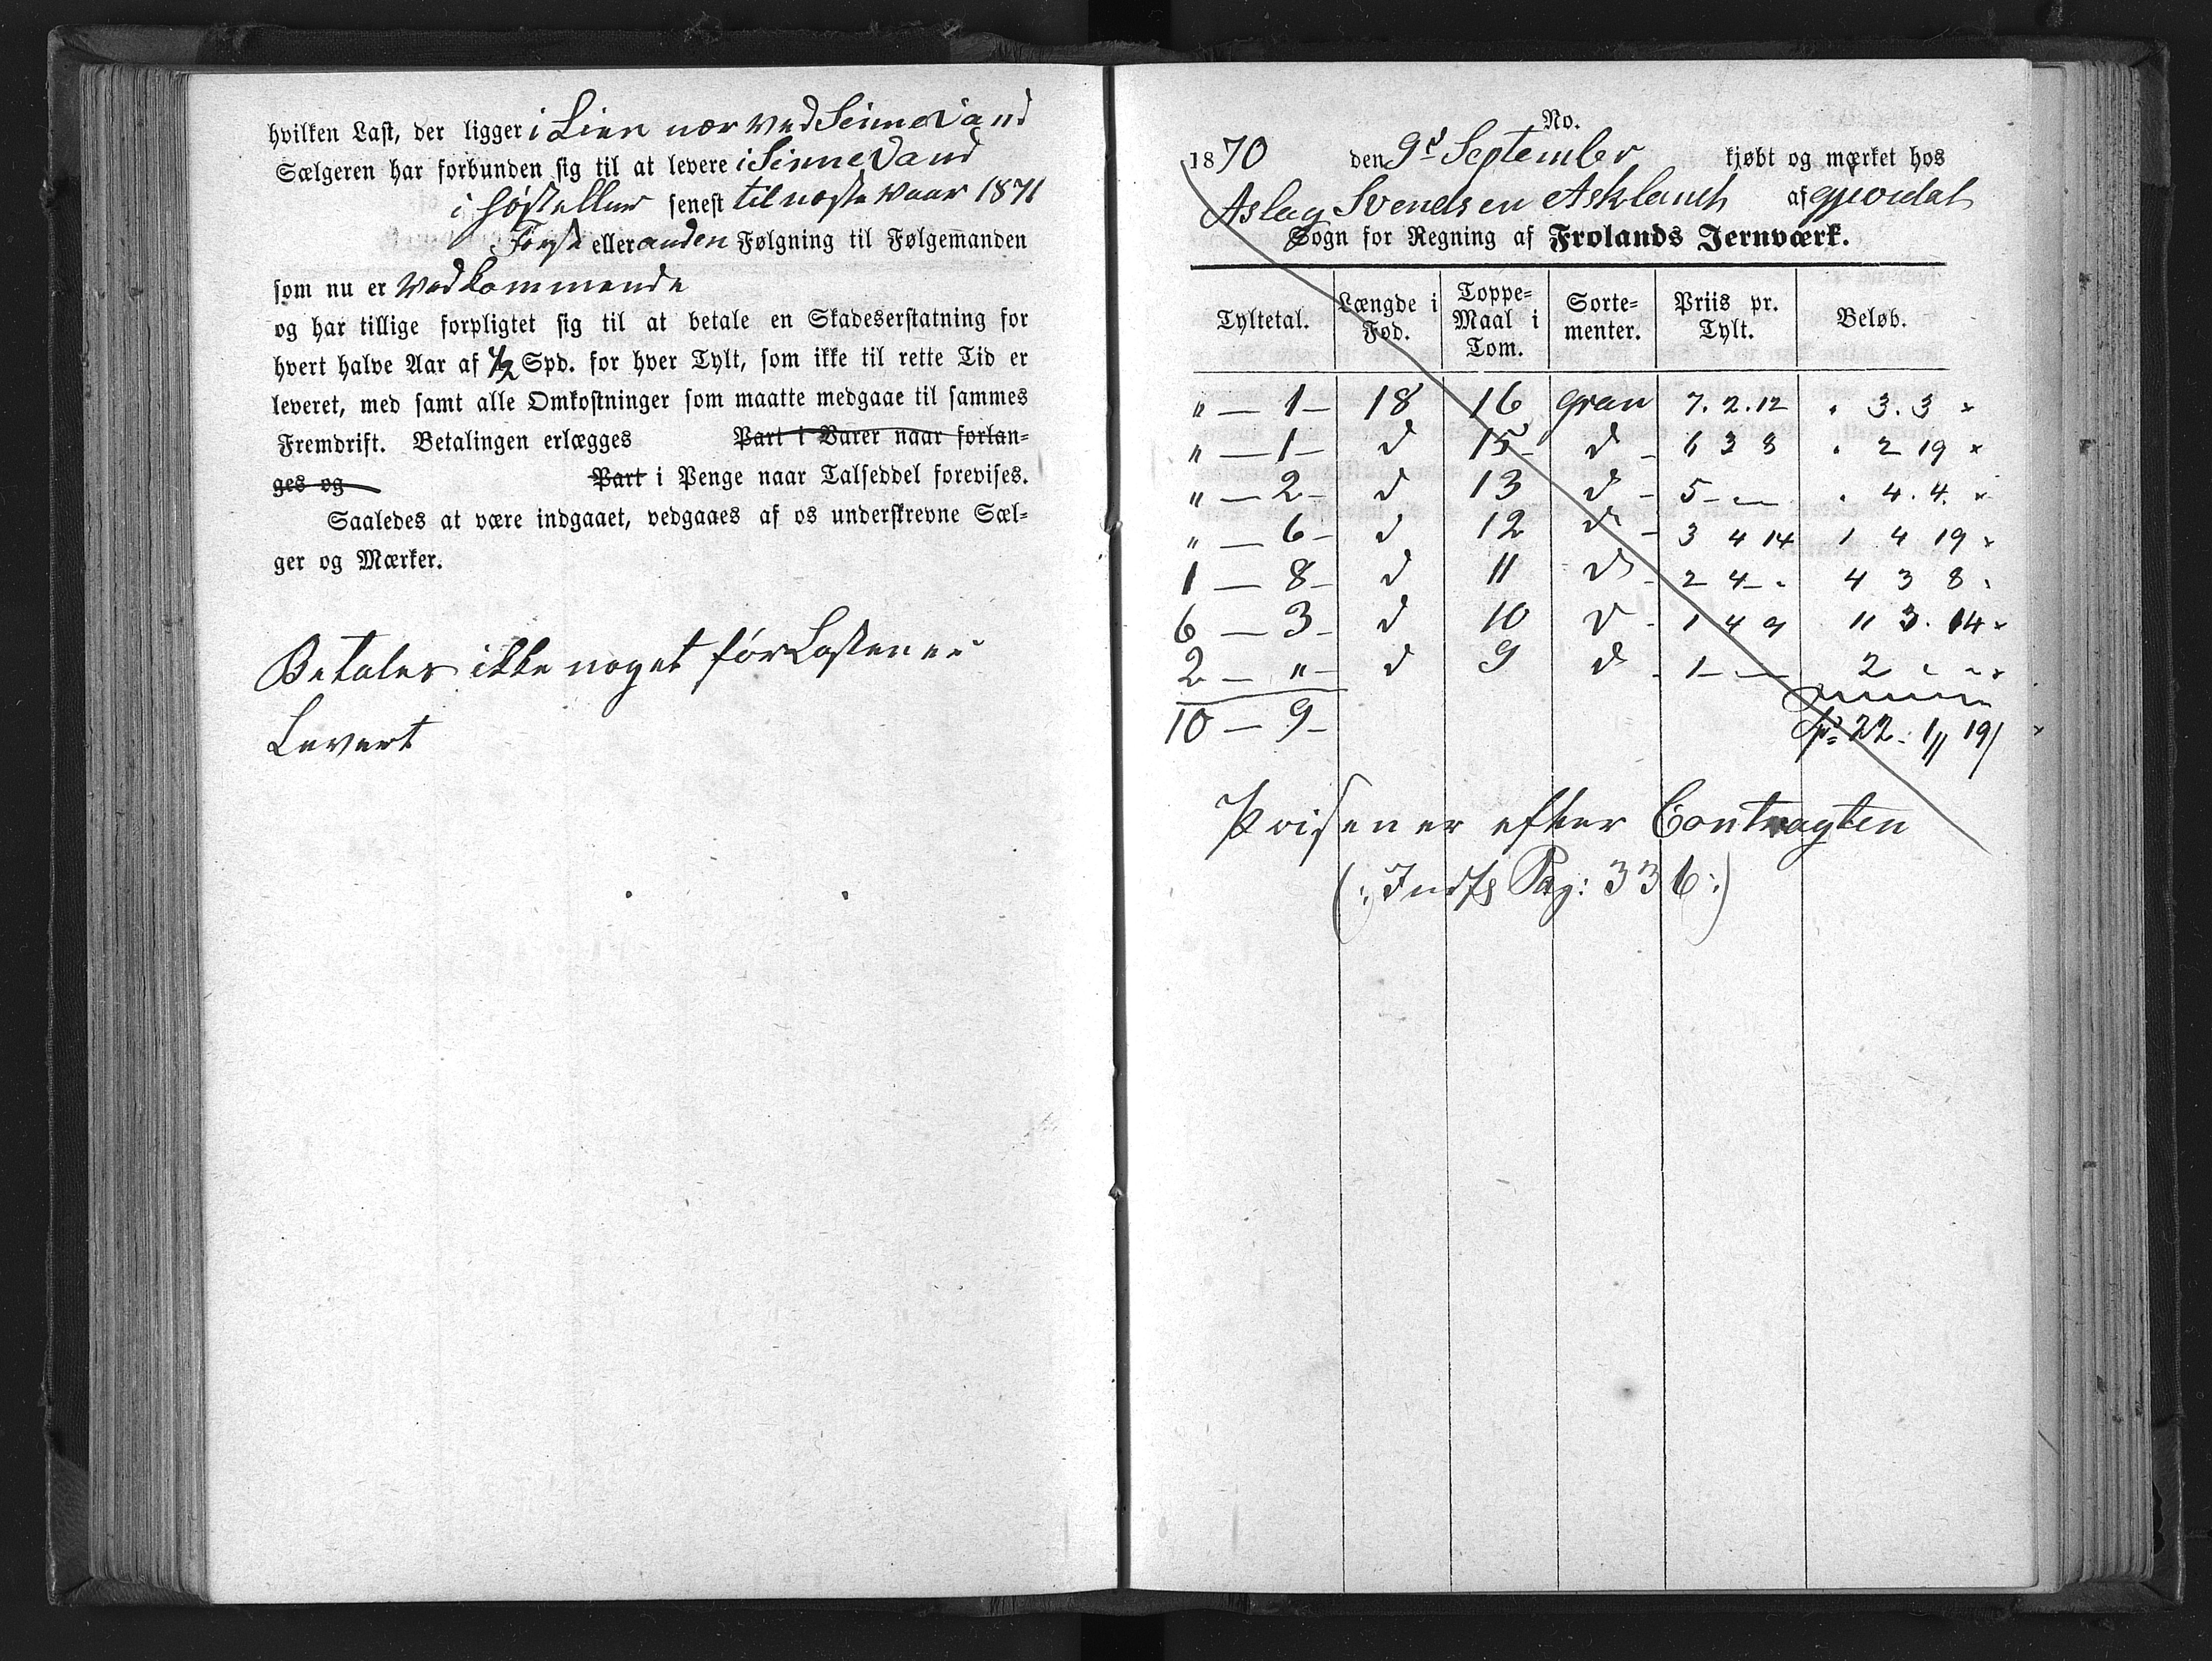 hvilken Last, der ligger i Lien nær ved Sinne Vand
Sælgeren har forbunden sig til at levere i Sinne Vand
i høst eller senest til næste Vaar 1871
Første eller anden Følgning til Følgemanden
som nu er Vedkommende
og har tillige forpligtet sig til at betale en Skadeserstatning for
hvert halve Aar af 1/2 Spd. for hver Tylt, som ikke til rette Tid er
leveret, med samt alle Omkostninger som maatte medgaae til sammes
Fremdrift. Betalingen erlægges Part i Varer naar forlan-
ges og Part i Penge naar Talseddel forevises.
Saaledes at være indgaaet, vedgaaes af os underskrevne Sæl-
ger og Mærker.
Betales ikke noget før Lasten er
Levert
No.
1870 den 9d September kjøbt og mærket hos
Aslag Svendsen Askland af Gjøvdal
Sogn for Regning af Frolands Jernværk.
Tyltetal. Længde i Fod. Toppe-Maal i Tom. Sorte-menter. Priis pr. Tylt. Beløb.
" — 1 — 18 16 gran 7. 2. 12 . 3. 3 "
" — 1 — d 15 - d - 6 3 8 . 2 19 "
" — 2 - d 13 d - 5 - — . 4. 4. "
" — 6 - d 12 d - 3 4 14 1 4 19 "
1 — 8 - d 11 d - 2 4 - . 4 3 8 "
6 — 3 - d 10 d - 1 4 9 11 3. 14 "
2 — " - d 9 d - 1 - — 2 " " "
10 — 9 - Spd 22. 1 " 19 "
Prisen er efter Contragten
(: Pag: 336 :)